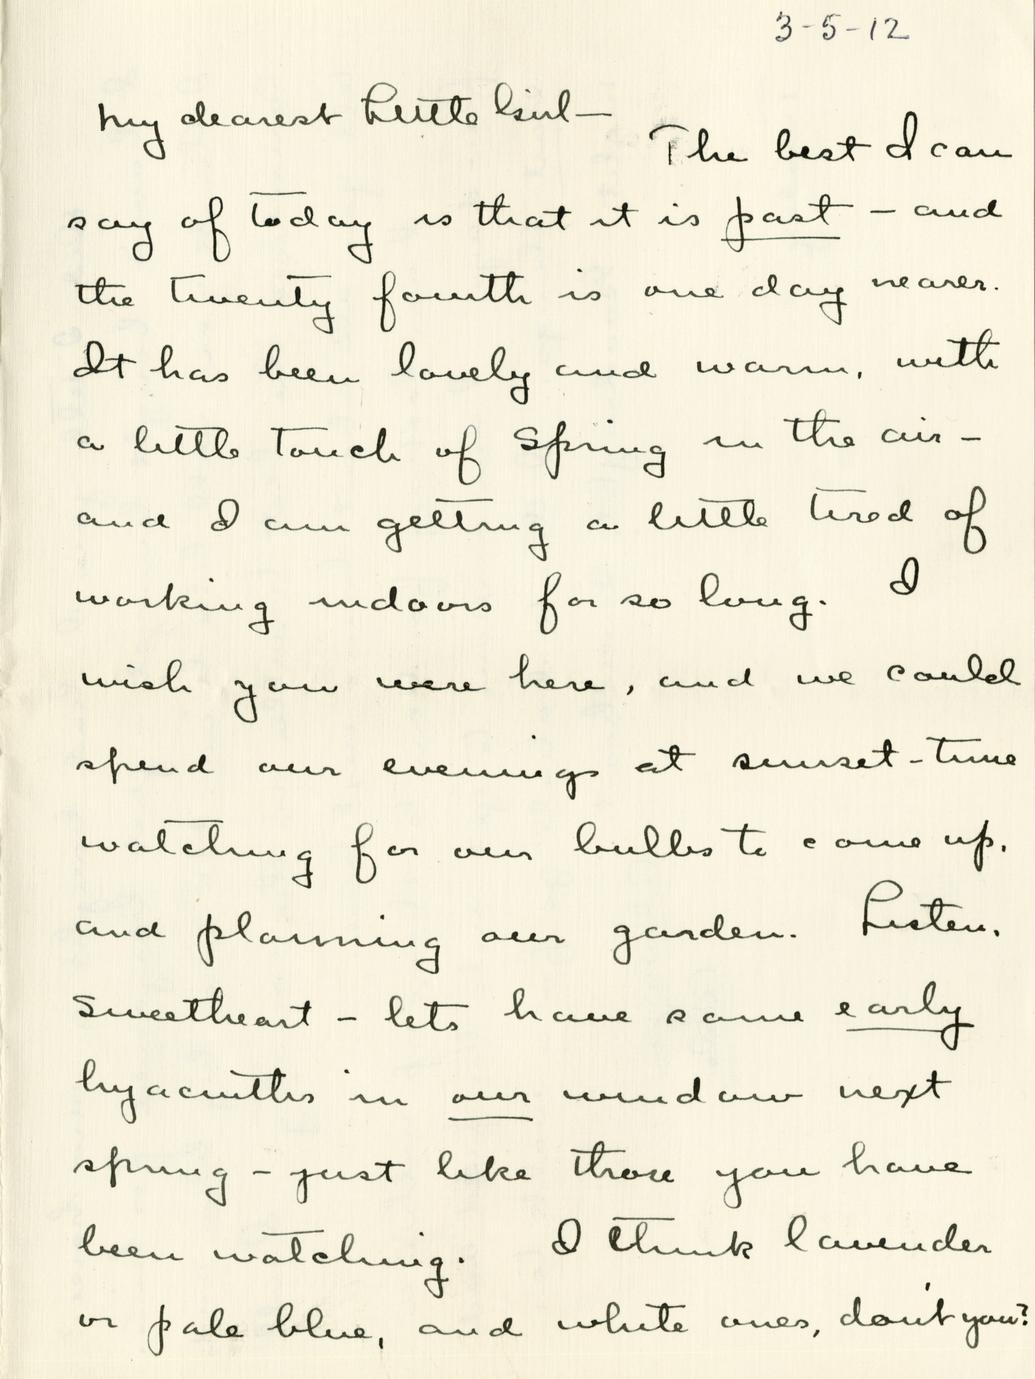 3-5-12
My dearest Little Girl—
The best I can
say of today is that it is past - and
the twenty fourth is one day nearer.
It has been lovely and warm, with
a little touch of Spring in the air -
and I am getting a little tired of
working indoors for so long. I
wish you were here, and we could
spend our evenings at sunset-time
watching for our bulbs to come up,
and planning our garden. Listen,
Sweetheart - lets have some early
hyacinths in our window next
spring - just like those you have
been watching. I think lavender
or pale blue, and white ones, don't you?